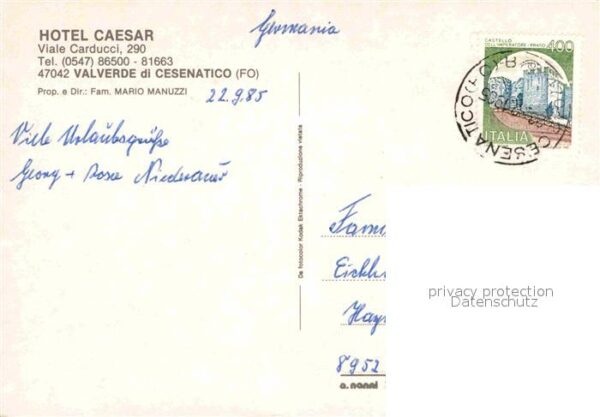 HOTEL CAESAR
Viale Carducci, 290
Tel. (0547) 86500 - 81663
47042 VALVERDE di CESENATICO (FO)
Prop. e Dir.: Fam. MARIO MANUZZI
Germania
22.9.85
Viele Urlaubsgrüße
Georg + Rosa Niederauer
De fotocolor Kodak Ektachrome - Riproduzione vietata
CASTELLO
DELL'IMPERATORE - PRATO
400
ITALIA
CESENATICO (FO)
Fam
Eich
Hay
8952
a. nanni
privacy protection
Datenschutz